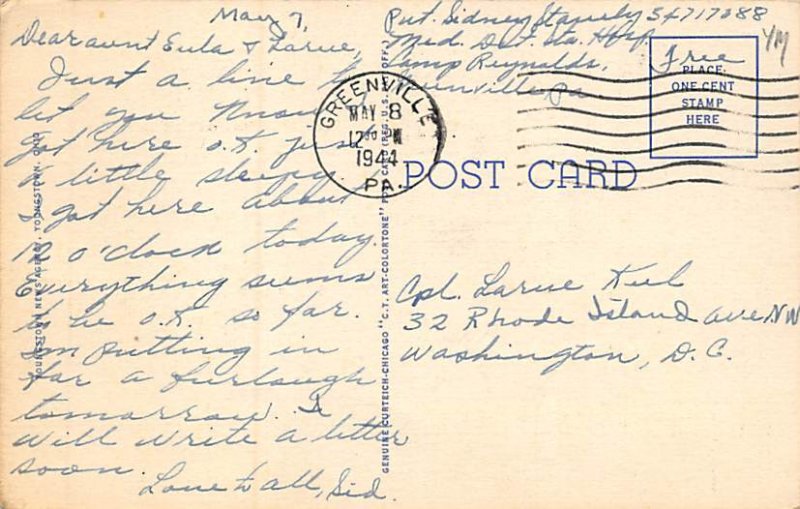 May 7,
Dear aunt Eula & Larue,
Just a line to
let you know I
got here o.k. just
a little sleepy.
I got here about
12 o'clock today.
Everything seems
to be o.k. so far.
Im putting in
for a furlough
tomorrow. I
will write a letter
soon.
Love to all, Sid.
Pvt. Sidney 34717088
Med. Det. Sta. Hosp.
Camp Reynolds,
Greenville, Pa
Free
PLACE
ONE CENT
STAMP
HERE
GREENVILLE
MAY 8
12 PM
1944
PA.
POST CARD
Cpl. Larue Kul
32 Rhode Island Ave. NW
Washington, D.C.
YOUNGSTOWN NEWS AGENCY, YOUNGSTOWN, OHIO
GENUINE CURTEICH-CHICAGO "C.T. ART-COLORTONE" POST CARD (REG. U.S. PAT. OFF.)